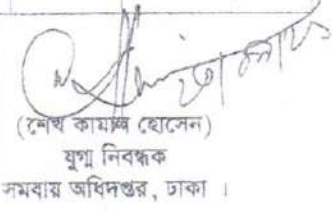 (শেখ কামাল হোসেন)
যুগ্ম নিবন্ধক
সমবায় অধিদপ্তর, ঢাকা ।